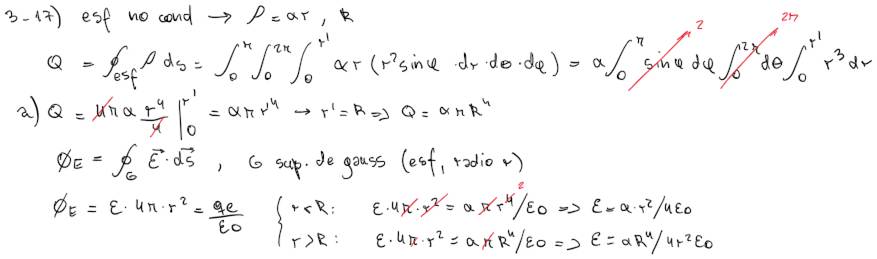 3-17) esf no cond → ρ = αr, R
Q = ∮esf ρ ds = ∫₀^π ∫₀^2π ∫₀^r' αr (r² sin φ · dr · dθ · dφ) = α ∫₀^π sin φ dφ ∫₀^2π dθ ∫₀^r' r³ dr 2 2π
a) Q = 4πα r⁴/4 |₀^r' = απr'⁴ → r' = R => Q = απR⁴
ØE = ∮G E⃗ · ds⃗, G sup. de gauss (esf, radio r)
ØE = E · 4π · r² = qe/ε0 { r < R: E · 4π · r² = απr⁴/ε0 => E = α · r²/4ε0 2
r > R: E · 4π · r² = απR⁴/ε0 => E = αR⁴/4r²ε0